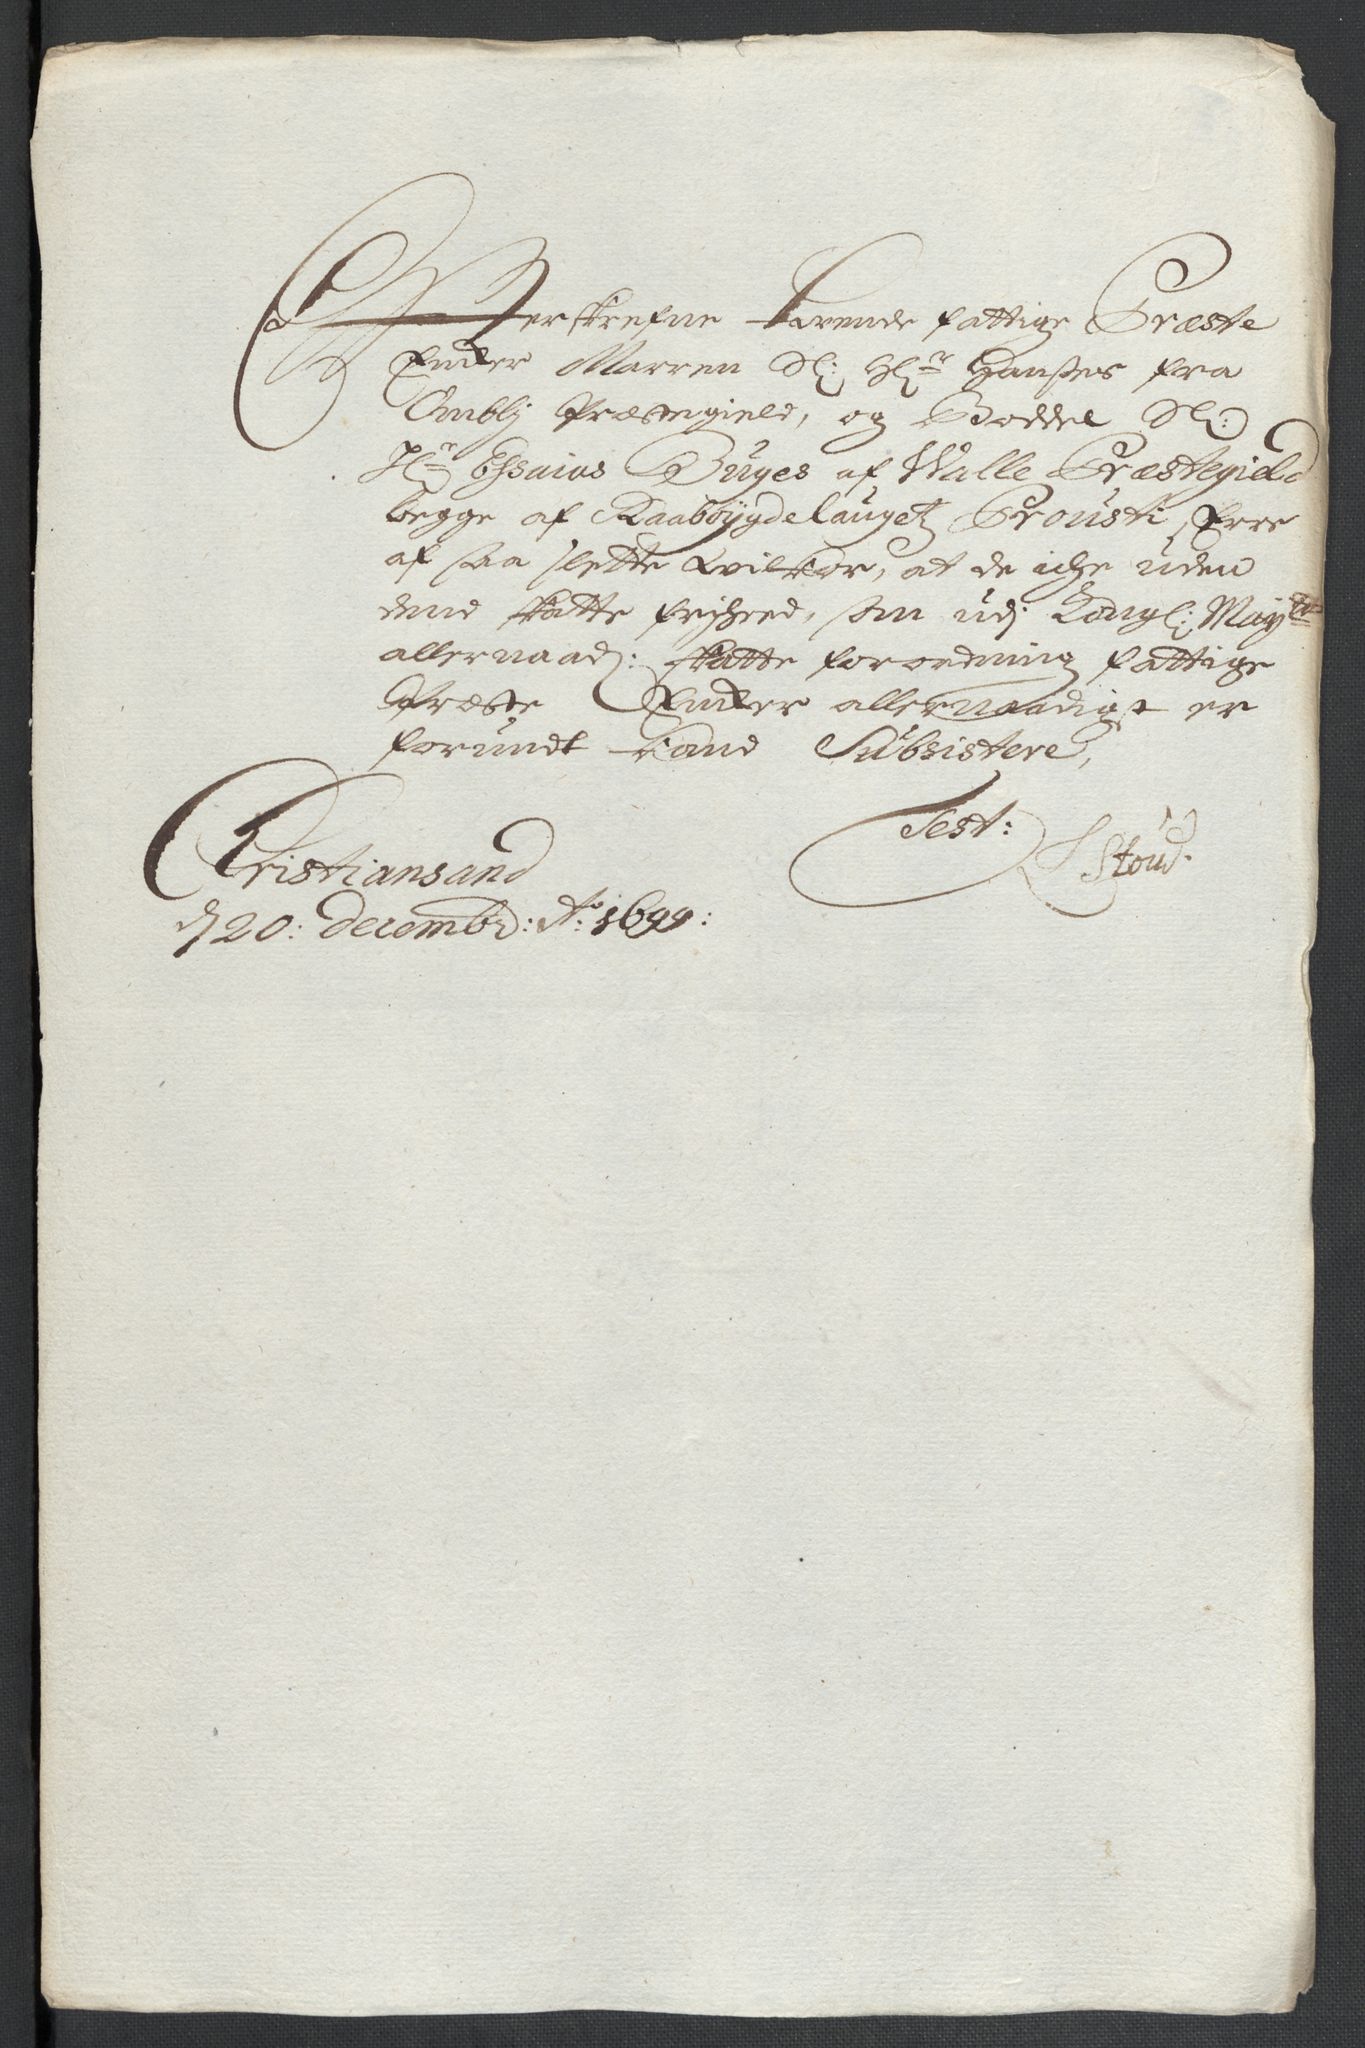 Efterskrefne tvende fattige Præste
Encker Marren Sl: Hr: Hanses fra
Omblj Præstegield, og Boddel Sl:
Hr: Essaias Buges af Walle Præstegield
begge af Raabøygdelauget Prousti, Erre
af saa slette Vilkor, at de iche uden
dend skatte frihed, som udj Kongl: Mayts
allernaad: skatte forordning fattige
Præste Encker allernaadigst er
forundt kand Subsistere,
Test:
Stoud.
Cristiansand
d 20: decembr: Ao: 1699: